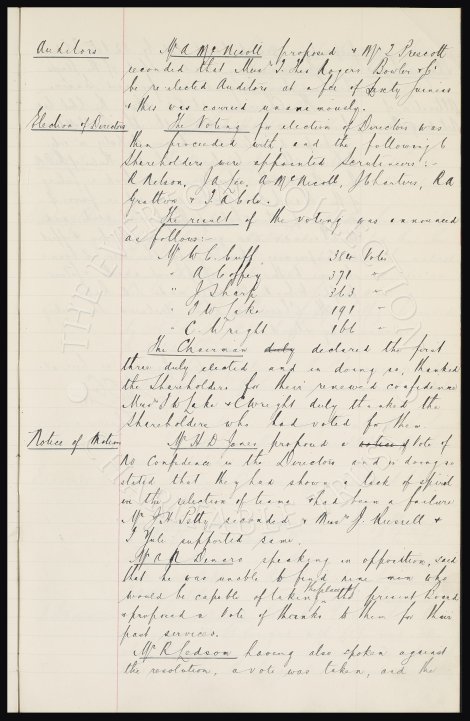 Auditors Mr A McNicoll proposed & Mr T Prescott
seconded that Messrs Theo Rogers Bowler & Co
be re-elected Auditors at a fee of Sixty Guineas
& this was carried unanimously.
Election of Directors The Voting for election of Directors was
then proceeded with, and the following 6
Shareholders were appointed Scrutineers:-
R Nelson, J A Lee, A McNicoll, R A
Gratton &
The result of the voting was announced
as follows:-
Mr W. C. Cuff 380 Votes
" A Coffey 371 "
" J Sharp 363 "
" T W Lake 191 "
" C Wright 166 "
The Chairman duly declared the first
three duly elected and in doing so, thanked
the Shareholders for their renewed confidence
Messrs Lake & C Wright duly thanked the
Shareholders who had voted for them.
Notice of Motion Mr H D Jones proposed a notice of Vote of
No Confidence in the Directors and in doing so
stated that they had shown a lack of
in the selection of teams & had been a failure
Mr J H Petty seconded & Messrs J. Russell &
J Yule supported same.
Mr A R speaking in opposition, said
that he was unable to find nine men who
would be capable of taking the places of the present Board
& proposed a Vote of thanks to them for their
past services.
Mr R Ledsom having also spoken against
the resolution, a vote was taken, and the